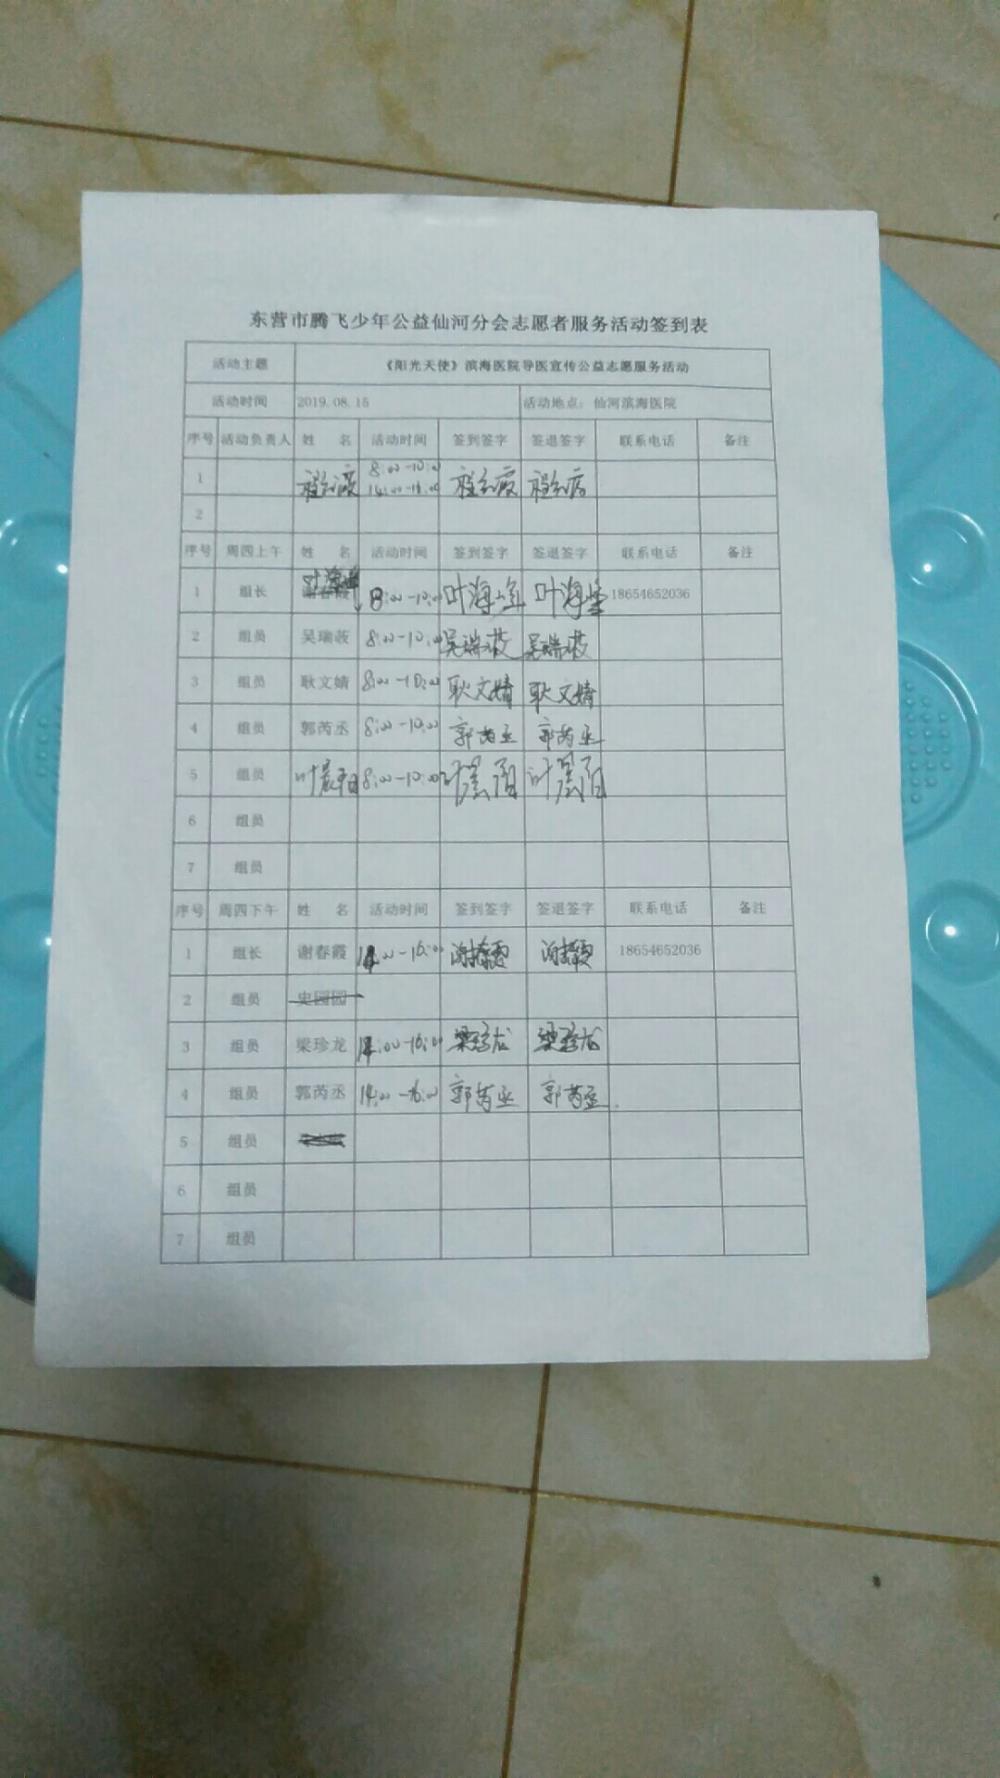 东营市腾飞少年公益仙河分会志愿者服务活动签到表
活动主题 《阳光天使》滨海医院导医宣传公益志愿服务活动
活动时间 2019.08.15 活动地点：仙河滨海医院
序号 活动负责人 姓 名 活动时间 签到签字 签退签字 联系电话 备注
1 8:00-10:00
14:00-16:00
2
序号 周四上午 姓 名 活动时间 签到签字 签退签字 联系电话 备注
1 组长 谢春霞 8:00-10:00 18654652036
2 组员 吴瑞菝 8:00-10:00
3 组员 耿文婧 8:00-10:00 耿文婧 耿文婧
4 组员 郭芮丞 8:00-10:00 郭芮丞 郭芮丞
5 组员 叶晨阳 8:00-10:00 叶晨阳 叶晨阳
6 组员
7 组员
序号 周四下午 姓 名 活动时间 签到签字 签退签字 联系电话 备注
1 组长 谢春霞 14:00-16:00 谢春霞 谢春霞 18654652036
2 组员 史园园
3 组员 梁珍龙 14:00-16:00 梁珍龙 梁珍龙
4 组员 郭芮丞 14:00-16:00 郭芮丞 郭芮丞
5 组员
6 组员
7 组员